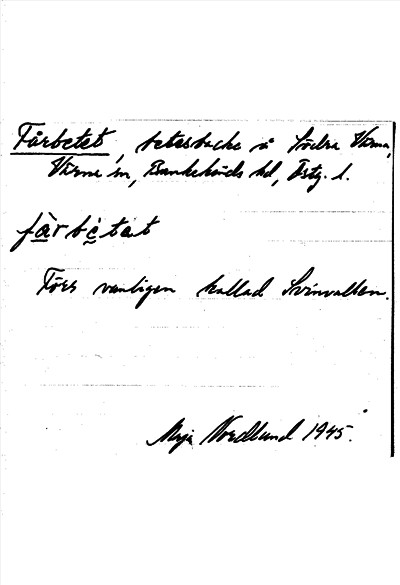 Fårbetet, betesbacke å Södra Värna,
Värna sn, Bankekinds hd, Östg. l.
fårbetat
Förr vanligen kallad Svinvallen.
Maja Nordlund 1945.